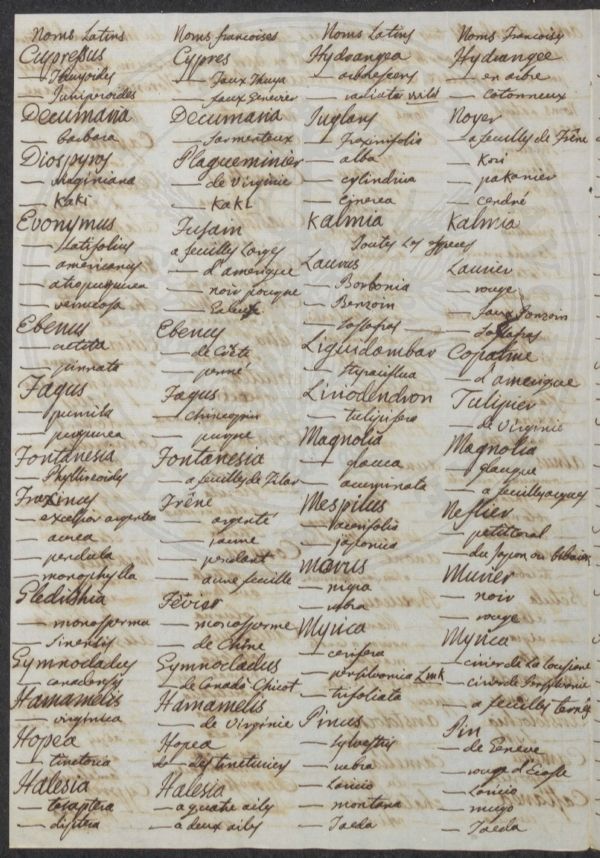 Noms Latins
Cypressus
— Thuyoides
— Juniperoides
Decumaria
— barbara
Diospyros
— Virginiana
— Kaki
Evonymus
— Latifolius
— americanus
— atropurpurea
— verrucosa
Ebenus
— cretica
— pinnata
Fagus
— pumila
— purpurea
Fontanesia
— Phyllireoides
Fraxinus
— excelsior argentea
— aurea
— pendula
— monophylla
Gleditshia
— monosperma
— sinensis
Gymnocladus
— canadensis
Hamamelis
— virginica
Hopea
— tinctoria
Halesia
— tetraptera
— diptera
Noms francoises
Cypres
— Faux Thuya
— faux Genevier
Decumaria
— Sarmenteux
Plaqueminier
— de Virginie
— Kaki
Fusain
a feuilles Larges
— d'amerique
— noir pourpre
— Galeux
Ebenus
— de Crète
— penné
Fagus
— chincapin
— purpre
Fontanesia
— a feuilles de Filar
Frêne
— argenté
— jaune
— pendant
— a une feuille
Févier
— monosperme
— de Chine
Gymnocladus
— de Canada Chicot
Hamamelis
— de Virginie
Hopea
— des tinturies
Halesia
— a quatre ailes
— a deux ailes
Noms Latins
Hydrangea
— arbrescens
— radiata wild
Juglans
— fraxinifolia
— alba
— cylindrica
— cinerea
Kalmia
Toutes Les especes
Laurus
— Borbonia
— Benzoin
— Sassafras
Liquidambar
— styraciflua
Liriodendron
— tulipifera
Magnolia
— glauca
— acuminata
Mespilus
— japonica
Morus
— nigra
— rubra
Myrica
— cerifera
— pensilvanica Link
— trifoliata
Pinus
— sylvestris
— rubra
— Laricio
— montana
— Taeda
Noms Francoises
Hydrangée
— en arbre
— cotonneux
Noyer
— a feuilles de Frêne
— Kori
— pakanier
— cendré
Kalmia
Laurier
— rouge
— faux Benzoin
— Sassafras
Copalme
— d'amerique
Tulipier
— de Virginie
Magnolia
— glauque
— a feuilles aigues
Neflier
— du Japon ou Bibacier
Murier
— noir
— rouge
Myrica
— cirier de La Louisiane
— cirier de Pensylvanie
— a feuilles ternés
Pin
— de Genève
— rouge d'Ecosse
— Laricio
— mugo
— Taeda